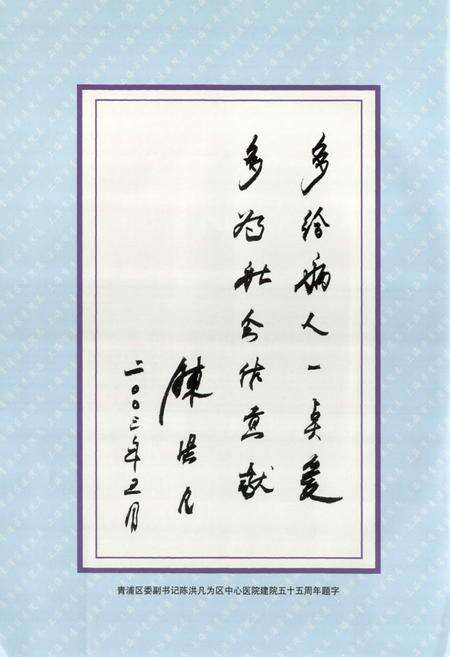 多给病人一点爱
多为社会作贡献
陳洪凡
二〇〇三年五月
青浦区委副书记陈洪凡为区中心医院建院五十五周年题字